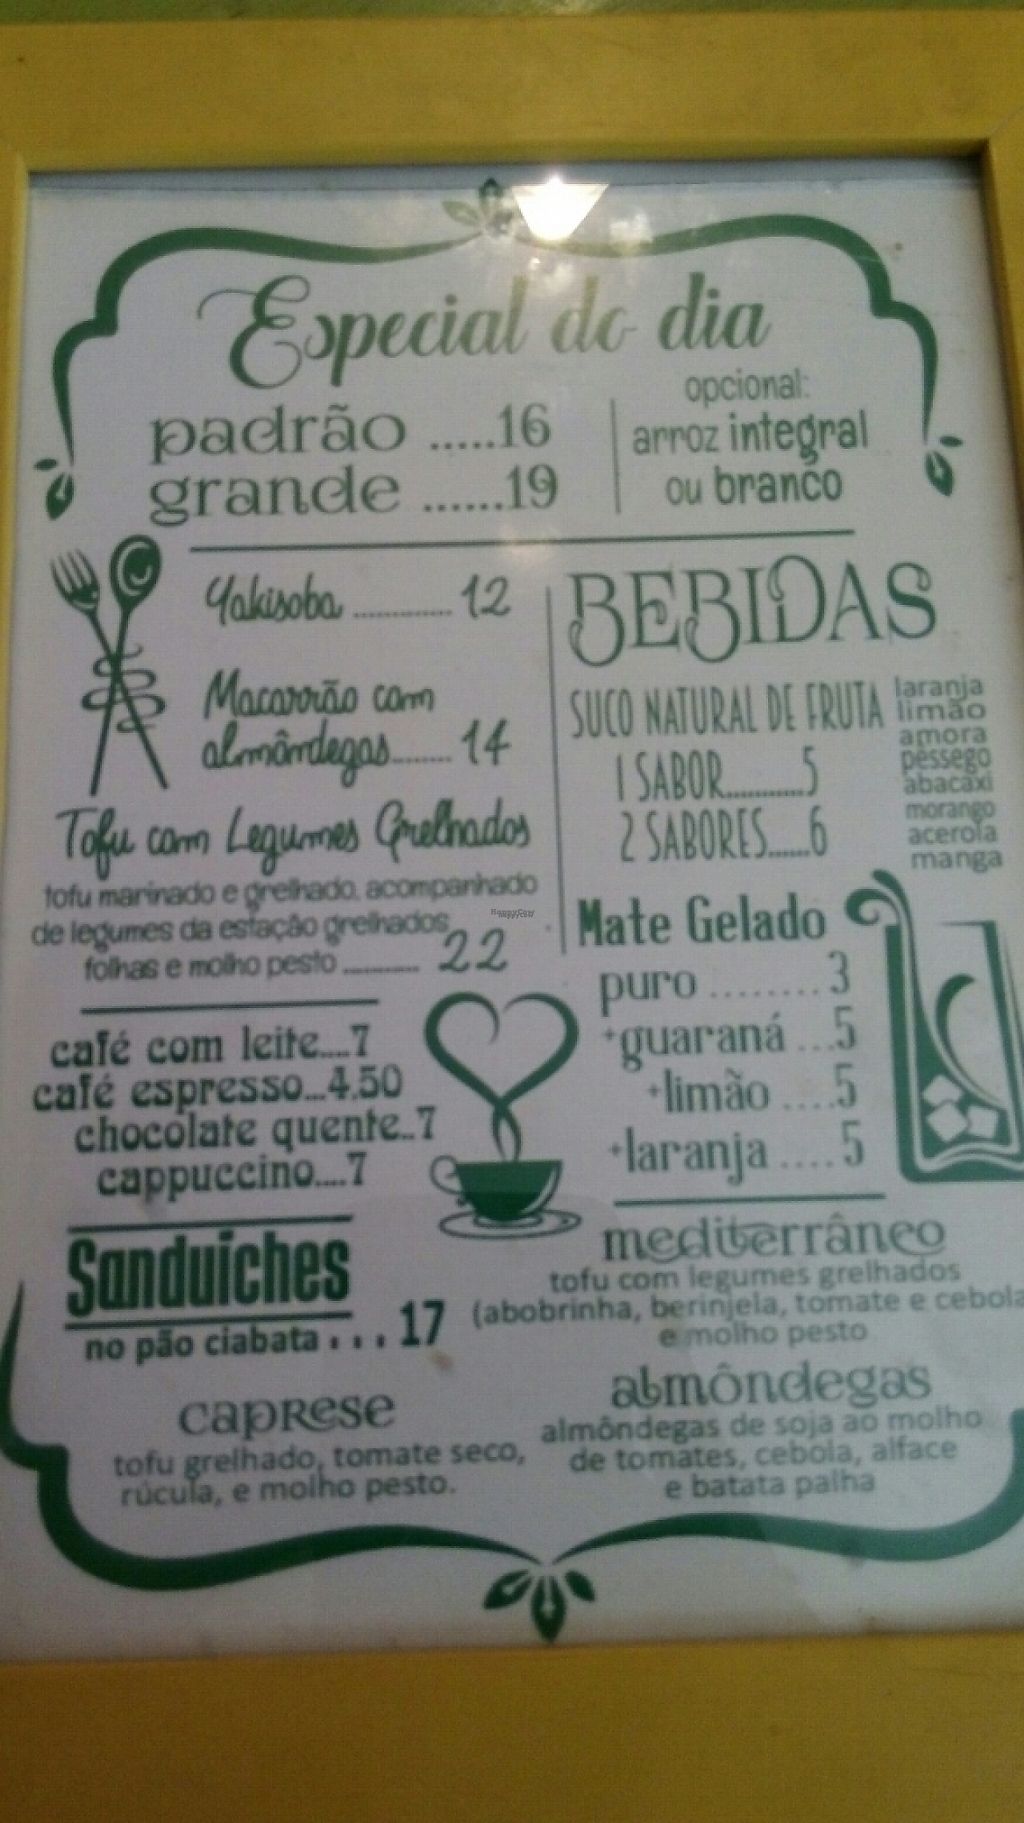 Especial do dia
padrão .....16
grande ......19
opcional:
arroz integral
ou branco
Yakisoba ............. 12
Macarrão com
almôndegas........ 14
Tofu com Legumes Grelhados
tofu marinado e grelhado, acompanhado
de legumes da estação grelhados,
folhas e molho pesto ........... 22
BEBIDAS
SUCO NATURAL DE FRUTA
1 SABOR............5
2 SABORES......6
laranja
limão
amora
pêssego
abacaxi
morango
acerola
manga
Mate Gelado
puro ........ 3
+guaraná ...5
+limão ....5
+laranja ....5
café com leite....7
café espresso...4.50
chocolate quente..7
cappuccino....7
Sanduíches
no pão ciabata . . . 17
caprese
tofu grelhado, tomate seco,
rúcula, e molho pesto.
mediterrâneo
tofu com legumes grelhados
(abobrinha, berinjela, tomate e cebola
e molho pesto
almôndegas
almôndegas de soja ao molho
de tomates, cebola, alface
e batata palha
HappyCow